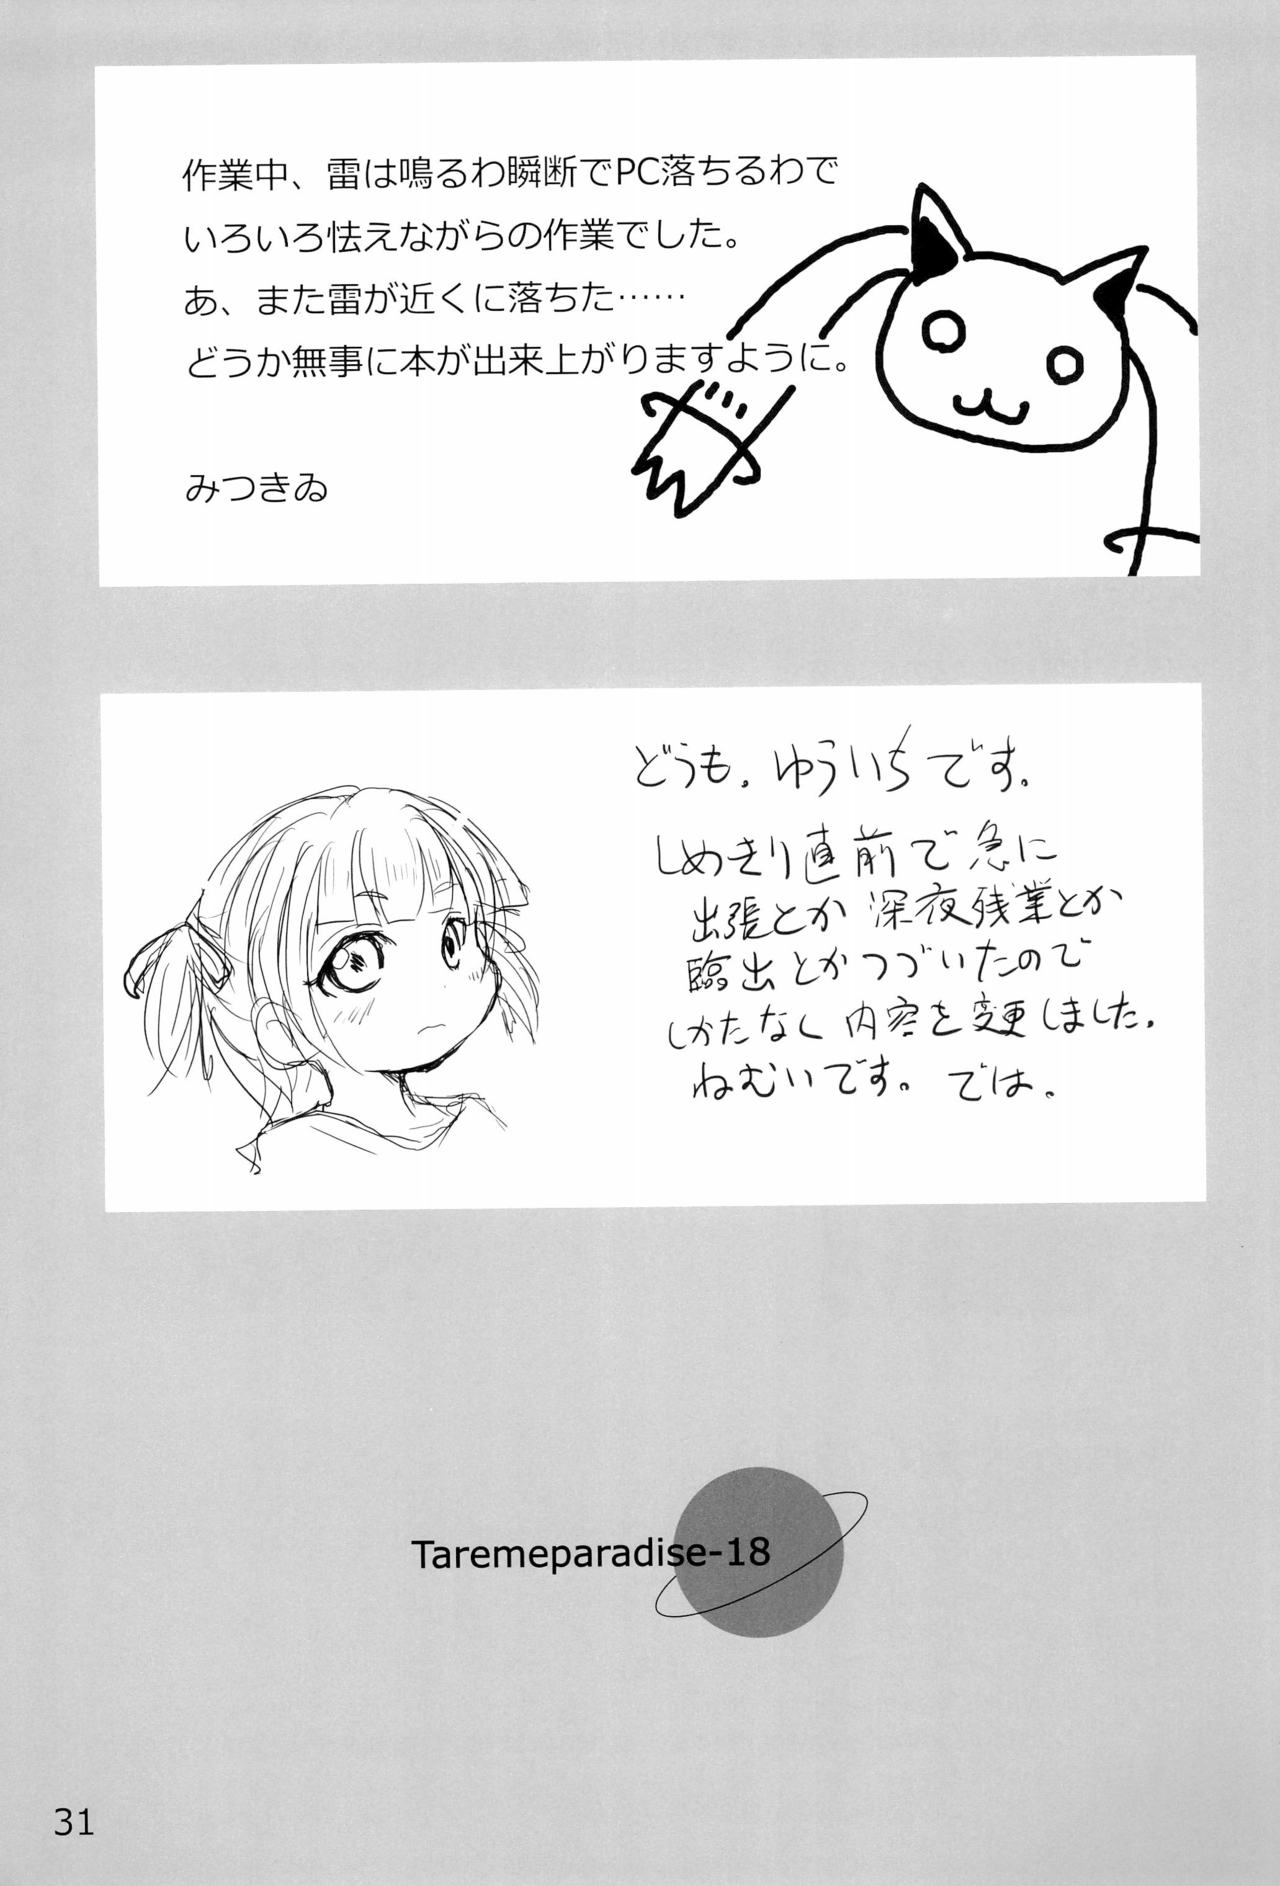 作業中、雷は鳴るわ瞬断でPC落ちるわで
いろいろ怯えながらの作業でした。
あ、また雷が近くに落ちた……
どうか無事に本が出来上がりますように。
みつきゐ
どうも。ゆういちです。
しめきり直前で急に
出張とか深夜残業とか
臨出とかつづいたので
しかたなく内容を変更しました。
ねむいです。では。
Taremeparadise-18
31